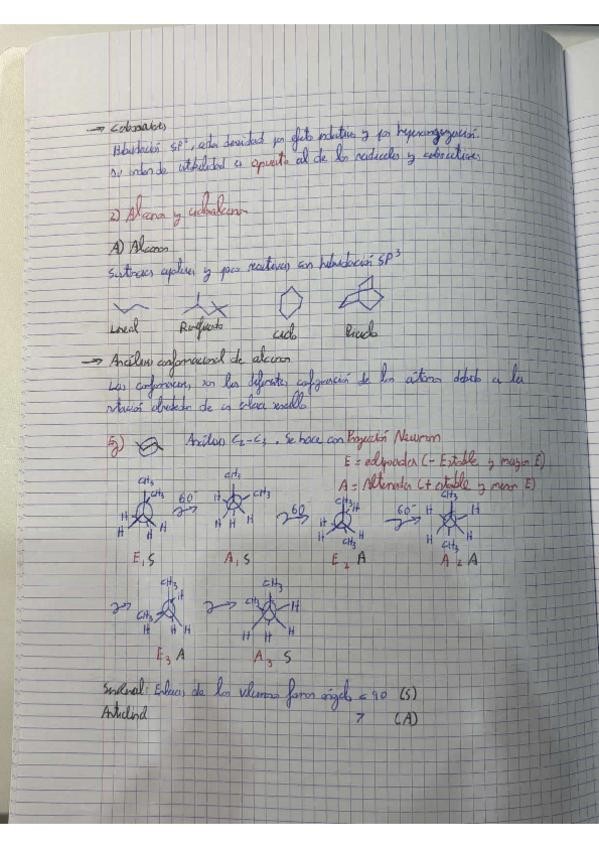 → Carbaniones
Hibridación SP³, esta densidad por efecto inductivo y por hiperconjugación.
Su orden de estabilidad es opuesto al de los radicales y carbocationes
2) Alcanos y cicloalcanos
A) Alcanos
Sustancias apolares y poco reactivas con hibridación SP³
Lineal Ramificado Ciclo Biciclo
→ Análisis conformacional de alcanos
Las conformaciones son las diferentes configuración de los átomos debido a la
rotación alrededor de un enlace sencillo
Ej) Análisis C₂-C₃. Se hace con Proyección Newman
E = eclipsadas (- Estable y mayor E)
A = Alternadas (+ estable y menor E)
CH₃ CH₃ H H H H
60°
CH₃ CH₃ CH₃ H H H H
60
CH₃ H H H CH₃ H
60°
CH₃ H H H H CH₃
E₁ S A₁ S E₂ A A₂ A
CH₃ H CH₃ H H H
CH₃ CH₃ H H H H
E₃ A A₃ S
Sinclinal: Enlaces de los volumen forman ángulo < 90 (S)
Anticlinal > (A)